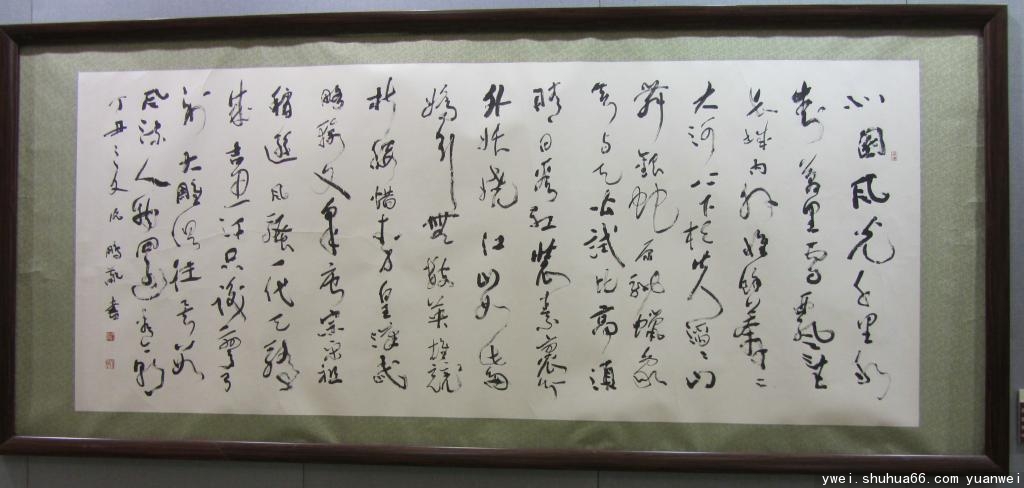 北國風光千里冰
封萬里雪飄望
長城内外惟餘莽〻
大河上下頓失滔〻山
舞銀蛇原馳蠟象
欲與天公試比高須
晴日看紅裝素裹分
外妖嬈江山如此多
嬌引無數英雄競
折腰惜秦皇漢武
略輸文采唐宗宋祖
稍遜風騷一代天驕
成吉思汗只識彎弓
射大雕俱往矣數
風流人物還看今朝
丁丑之 書
ywei.shuhua66.com yuanwei